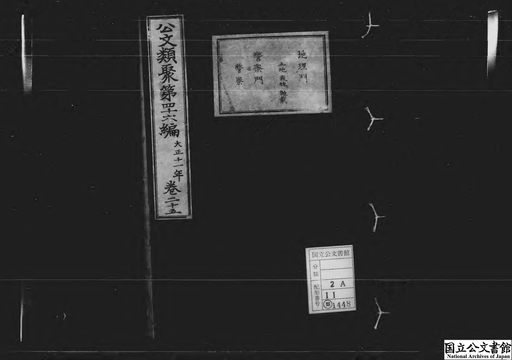 公文類聚第四十六編 大正十一年 巻二十五
地理門
土地 森林 動家
警察門
警察
国立公文書館
分類
配架番号
2A
11
類1448
国立公文書館
National Archives of Japan